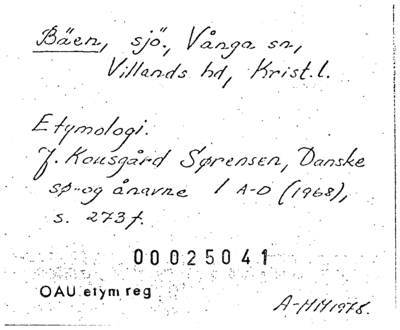 Bäen, sjö., Vånga sn,
Villands hd, Krist.l.
Etymologi.
J. Kousgård Sørensen, Danske
sø- og ånavne I A-D (1968),
s. 273 f.
00025041
OAU etym reg
A-HH 1978.